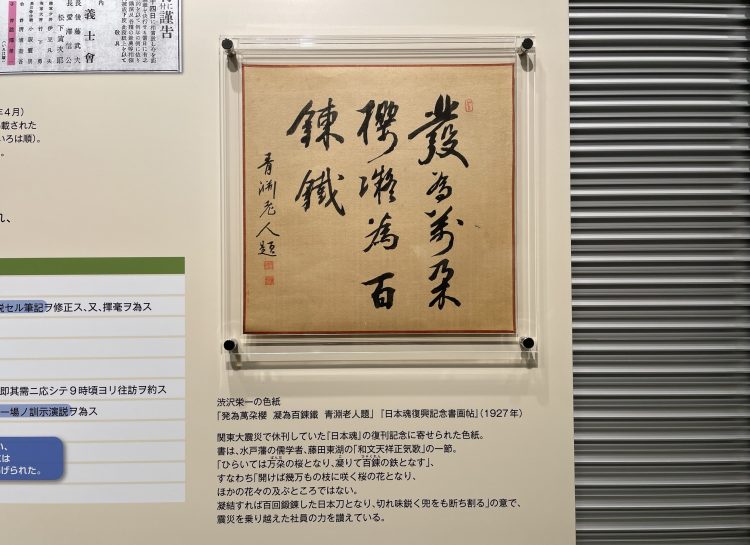 に謹告
義士會
後藤武夫
年4月)
載された
いろは順)。
れ、
説セル筆記ヲ修正ス、又、揮毫ヲ為ス
即其需ニ応シテ9時頃ヨリ往訪ヲ約ス
一場ノ訓示演説ヲ為ス
い、
は
げられた。
發為萬朶
櫻凝為百
鍊鐵
青渊老人題
渋沢栄一の色紙
「発為萬朶櫻 凝為百錬鐵 青淵老人題」『日本魂復興記念書画帖』(1927年)
関東大震災で休刊していた『日本魂』の復刊記念に寄せられた色紙。
書は、水戸藩の儒学者、藤田東湖の「和文天祥正気歌」の一節。
「ひらいては万朶の桜となり、凝りて百錬の鉄となす」、
すなわち「開けば幾万もの枝に咲く桜の花となり、
ほかの花々の及ぶところではない。
凝結すれば百回鍛錬した日本刀となり、切れ味鋭く兜をも断ち割る」の意で、
震災を乗り越えた社員の力を讃えている。